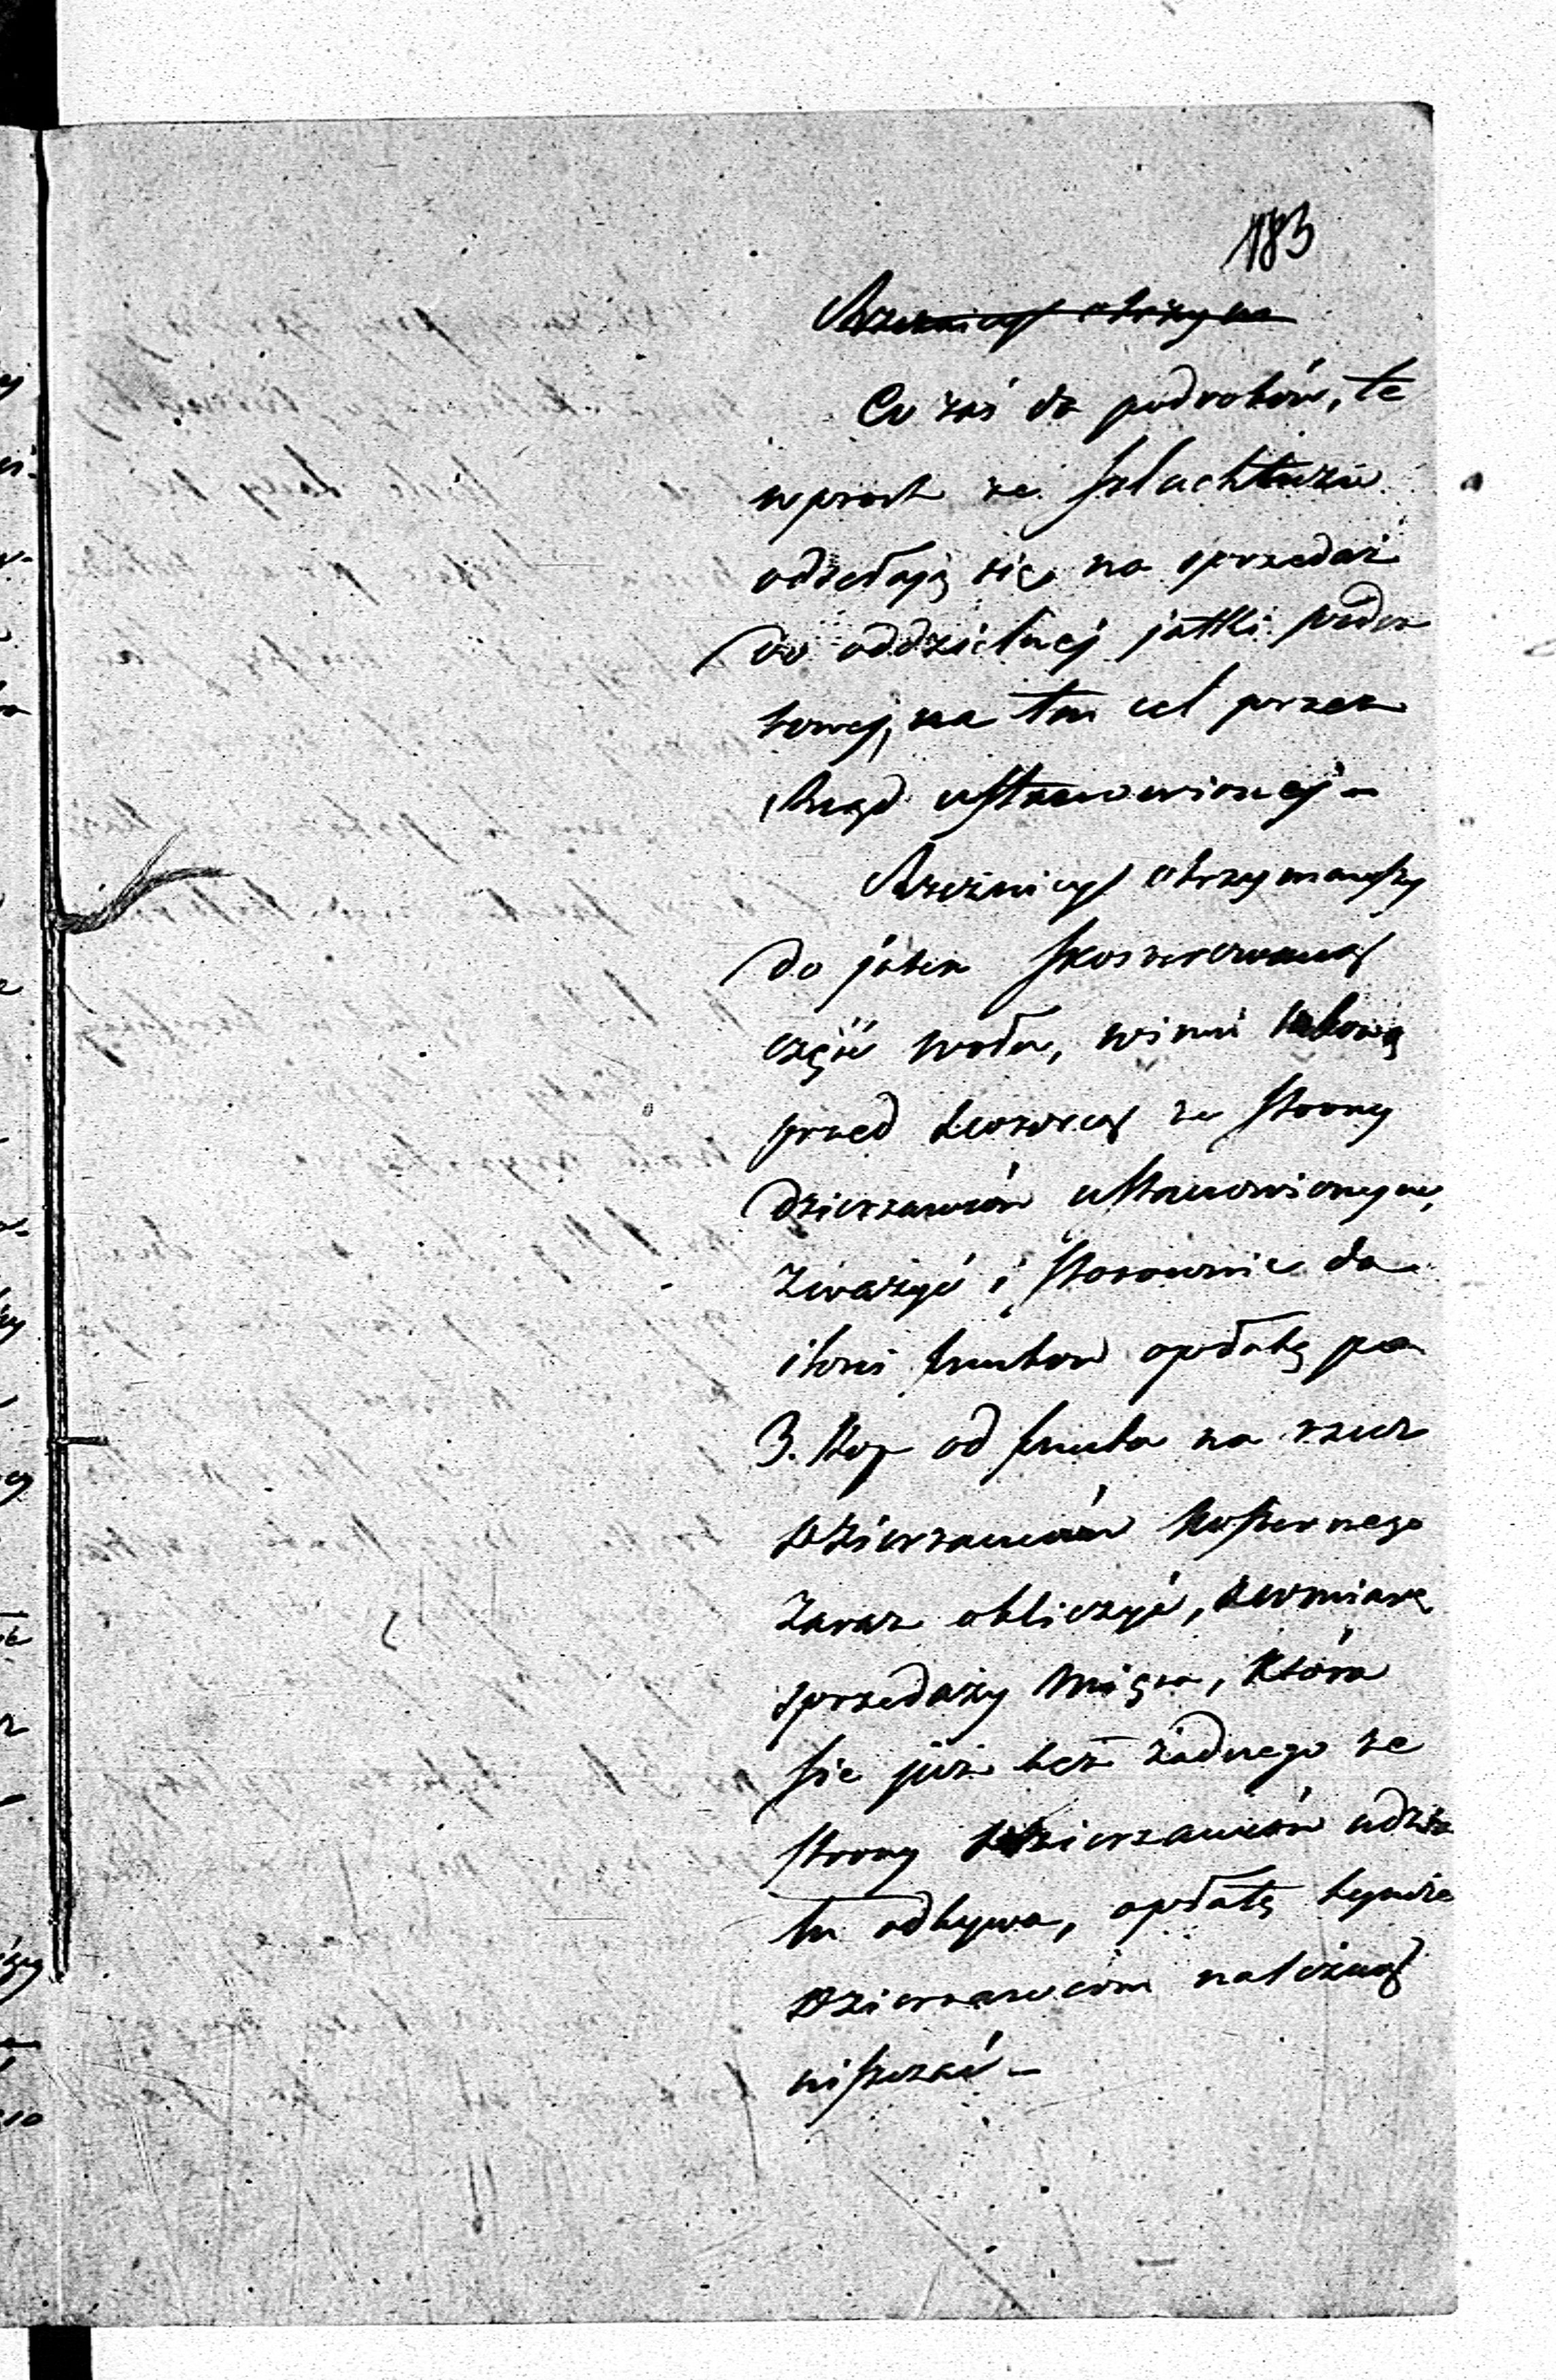 183
Rzeźnicy otrzyma
Co zaś do podrobów, te
wprost ze szlachtuzu
odsełają się na sprzedaż
do oddzielnej jatki podro
bowej, na ten cel przez
Rząd ustanowionej –
Rzeźnicy otrzymawszy
do jatek skoszerowaną
część wołu, winni takową
przed dozorcą ze strony
dzierżawców ustanowionym,
zważyć i stosownie do
ilości funtów opłatę po
3. kop od funta na rzecz
Dzierżawców koszernego
zaraz obliczyć, w miarę
sprzedaży mięsa, która
się już bez żadnego ze
strony Dzierżawców udzia
łu odbywa, opłatę tymże
Dzierżawcom należną
uiszczać –